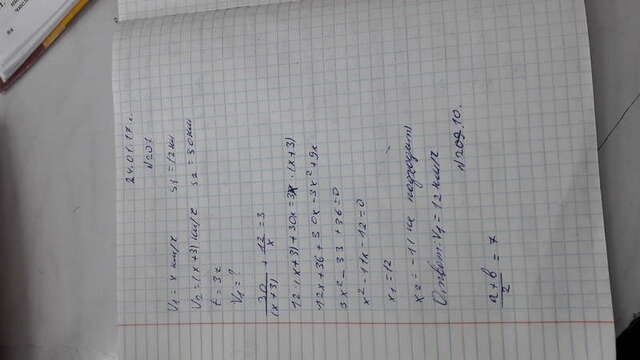 24.01.17 г.
N 201
V1 = x км/ч S1 = 12 км
V2 = (x+3) км/ч S2 = 30 км
t = 3 ч
V1 = ?
30/(x+3) + 12/x = 3
12·(x+3)+30x=3x·(x+3)
12x+36+30x=3x²+9x
3x²-33+36=0
x²-11x-12=0
x1=12
x2=-11 не подходит
Ответ: V1=12 км/ч
N 209.10.
(a+b)/2 = 7